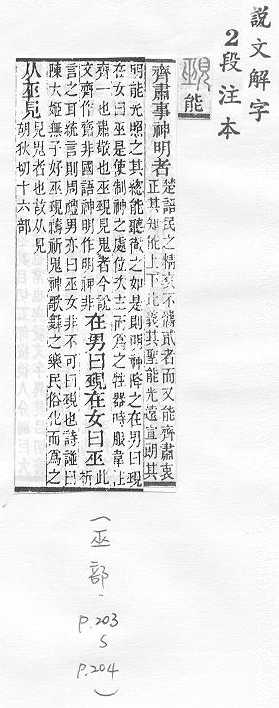 說文解字
2段注本
覡
能
齊肅事神明者
楚語民之精爽不攜貳者而又能齊肅衷
正其知能上下比義其聖能光遠宣朗其
明能光照之其聰能聽徹之如是則明神降之在男曰覡
在女曰巫是使制神之處位次主而爲之牲器時服韋注
齊一也肅敬也巫覡見鬼者今說
文齊作齋非國語神明作明神非
在男曰覡在女曰巫
此
析
言之耳統言則周禮男亦曰巫女非不可曰覡也詩譜曰
陳大姬無子好巫覡禱祈鬼神歌舞之樂民俗化而爲之
从巫見
見鬼者也故从見
胡狄切十六部
(巫部,
P.203
S
P.204
)